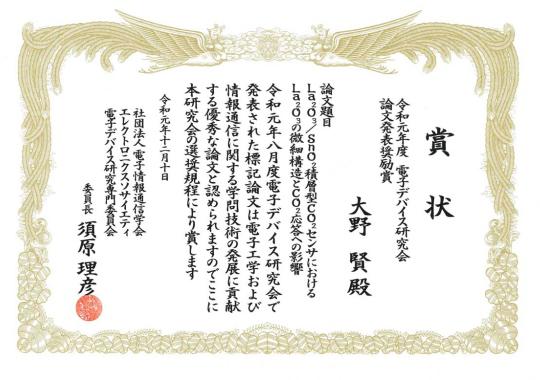 賞状
令和元年度 電子デバイス研究会
論文発表奨励賞
大野 賢殿
論文題目
La2O3/SnO2積層型CO2センサにおける
La2O3の微細構造とCO2応答への影響
令和元年八月度電子デバイス研究会で
発表された標記論文は電子工学および
情報通信に関する学問技術の発展に貢献
する優秀な論文と認められますのでここに
本研究会の選奨規程により賞します
令和元年十二月十日
社団法人電子情報通信学会
エレクトロニクスソサイエティ
電子デバイス研究専門委員会
委員長 須原 理彦